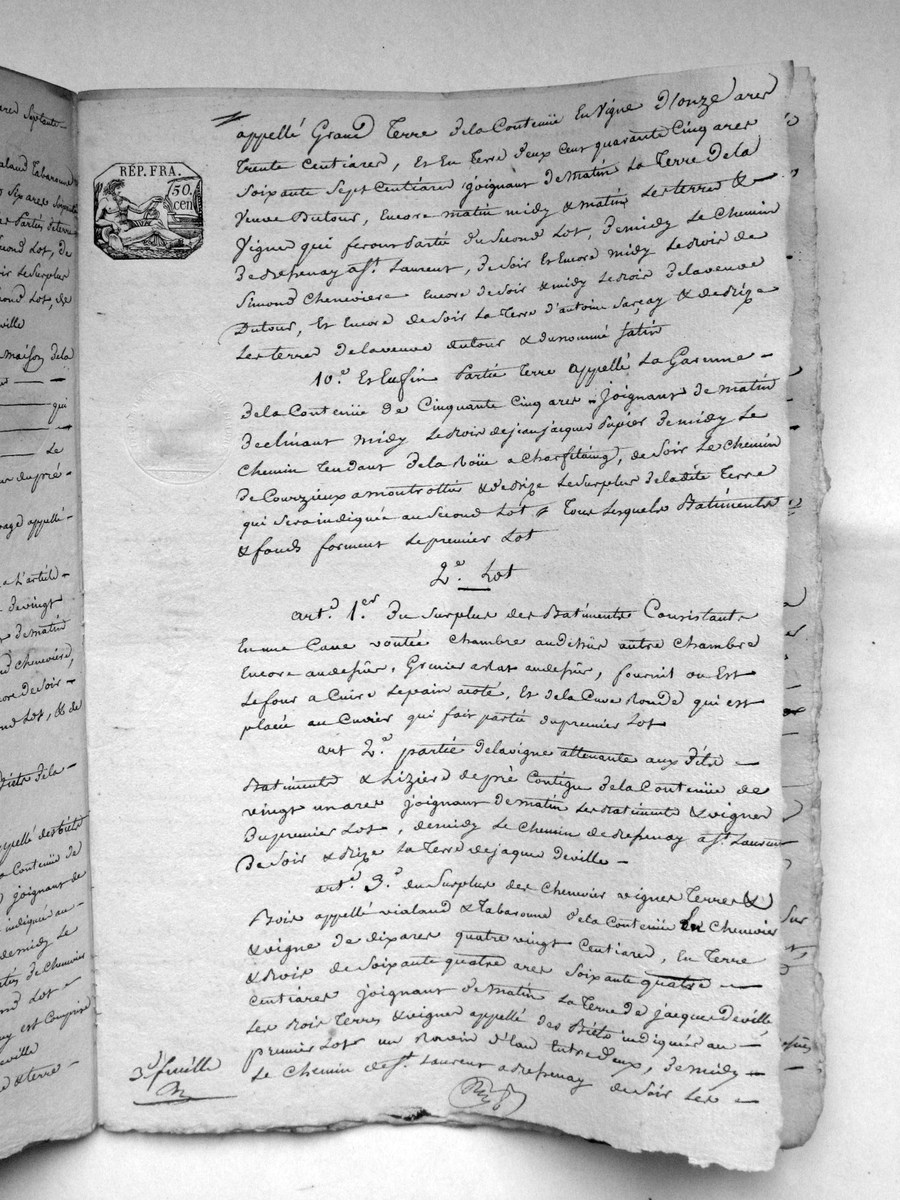 arer septente
aland Tabaronne
Six arer Soixante
er Parties de terre
econd Lot, de
ir Le Surplus
cond Lot, de
eville
maison de la
qui
Le
er du pré-
vage appellé-
a L'article
de vingt
de matin
d chenevière,
ore de Soir -
nd Lot, & de
appellé des biets
a Contenüe de
joignant de
indiqué au
de midy Le
de Chenevier
d Lot -
est Comprise
eville
& terre -
RÉP. FRA.
50
cen
appellé Grand Terre de la Contenüe En Vigne D'onze arer
trente Centiarer, Et En Terre deux cent quarante Cinq arer
Soixante Sept Centiarer joignant de Matin La Terre de La
Veuve Dutour, Encore matin midy & matin Les terres &
Vigne qui feront Partie du Second Lot, de midy Le Chemin
de Refrenay a St. Laurent, de Soir Et Encore midy Le Bois de
Simond Chenevière Encore de Soir & midy Le Bois de La veuve
Dutour, Et Encore de Soir La Terre d'antoine Sarçay & de Bize
Les terres de La veuve dutour & du nommé fatin
10.° Et Enfin Partie Terre appellé La Garenne -
de la Contenüe de Cinquante Cinq arer - joignant de matin
declinant midy Le Bois de jean jacques Papier de midy Le
Chemin tendant de La Roüe a , de Soir Le Chemin
de Courzieux a montrottier & de Bize Le Surplus de la dite Terre
qui sera indiquée au Second Lot # Tous Lesquels Batiments
& fonds forment Le premier Lot
2.e Lot
art. 1.er Du Surplus des Batiments Consistants
En une Cave voutée chambre audessus autre chambre
Encore audessus, Grenier a Rat audessus, fournil ou Est
Le four a Cuire Le pain a coté, Et de la Cuve Ronde qui est
placée au Cuvier qui fait partie du premier Lot
art 2.e partie de la vigne attenante aux dits -
Batiments & Lizière de pré Contigu de la Contenüe de
vingt un arer joignant de matin Les Batiments & vignes
Du premier Lot, de midy Le Chemin de Refrenay a St. Laurent
De Soir & Bize La Terre de jaques Deville -
art. 3.e du Surplus des Chenevier vignes Terres &
Bois appellé vialand & Tabaronne de la Contenüe En Chenevier
& vigne de dix arer quatre vingt Centiares, en Terre
& Bois de Soixante quatre arer Soixante quatre -
Centiarer joignant de Matin La Terre de jacques Deville
Les Bois Terres & vignes appellé des Biets indiquées au -
premier Lot un Ravin d'Eau Entredeux, de midy -
Le Chemin de St. Laurent a Refrenay de Soir Les -
3.e feuille